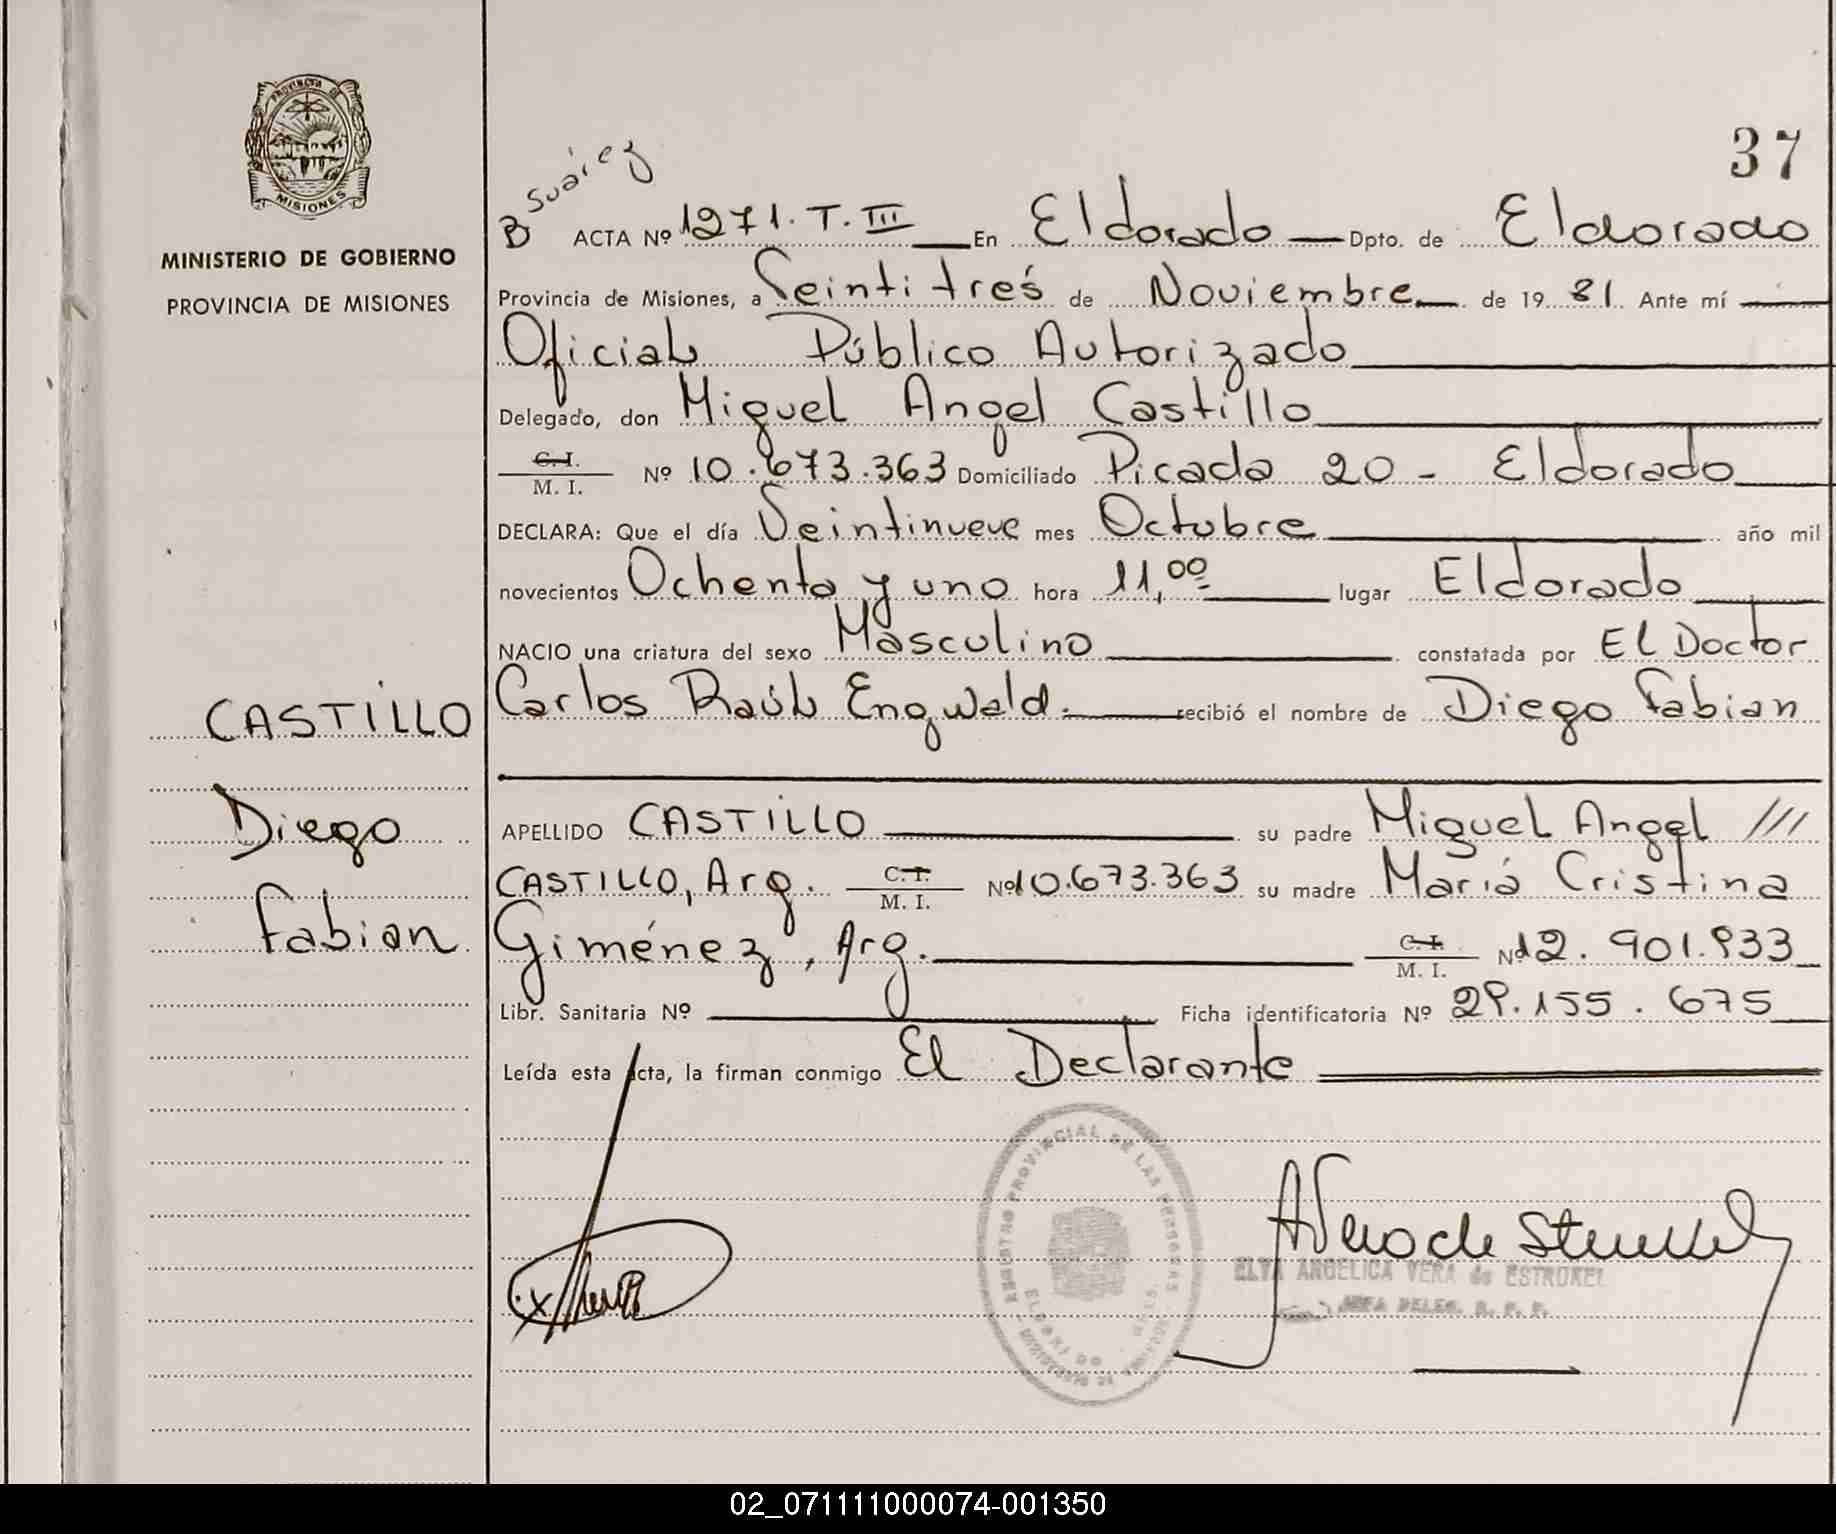 PROVINCIA DE
MISIONES
MINISTERIO DE GOBIERNO
PROVINCIA DE MISIONES
37
B Suárez
ACTA Nº 1271. T. III En Eldorado Dpto. de Eldorado
Provincia de Misiones, a Veintitrés de Noviembre de 19 81 Ante mí
Oficial Público Autorizado
Delegado, don Miguel Angel Castillo
C. I. / M. I. Nº 10.673.363 Domiciliado Picada 20 - Eldorado
DECLARA: Que el día Veintinueve mes Octubre año mil
novecientos Ochenta y uno hora 11,00 lugar Eldorado
NACIO una criatura del sexo Masculino constatada por El Doctor
Carlos Raúl Engwald. recibió el nombre de Diego Fabian
APELLIDO CASTILLO su padre Miguel Angel ///
CASTILLO, Arg. C. I. / M. I. Nº 10.673.363 su madre María Cristina
Giménez, Arg. C. I. / M. I. Nº 12.901.933
Libr. Sanitaria Nº Ficha identificatoria Nº 29.155.675
Leída esta acta, la firman conmigo El Declarante
CASTILLO
Diego
Fabian
REGISTRO PROVINCIAL DE LAS PERSONAS
ELDORADO
ELVA ANGELICA VERA de ESTROKEL
02_071111000074-001350